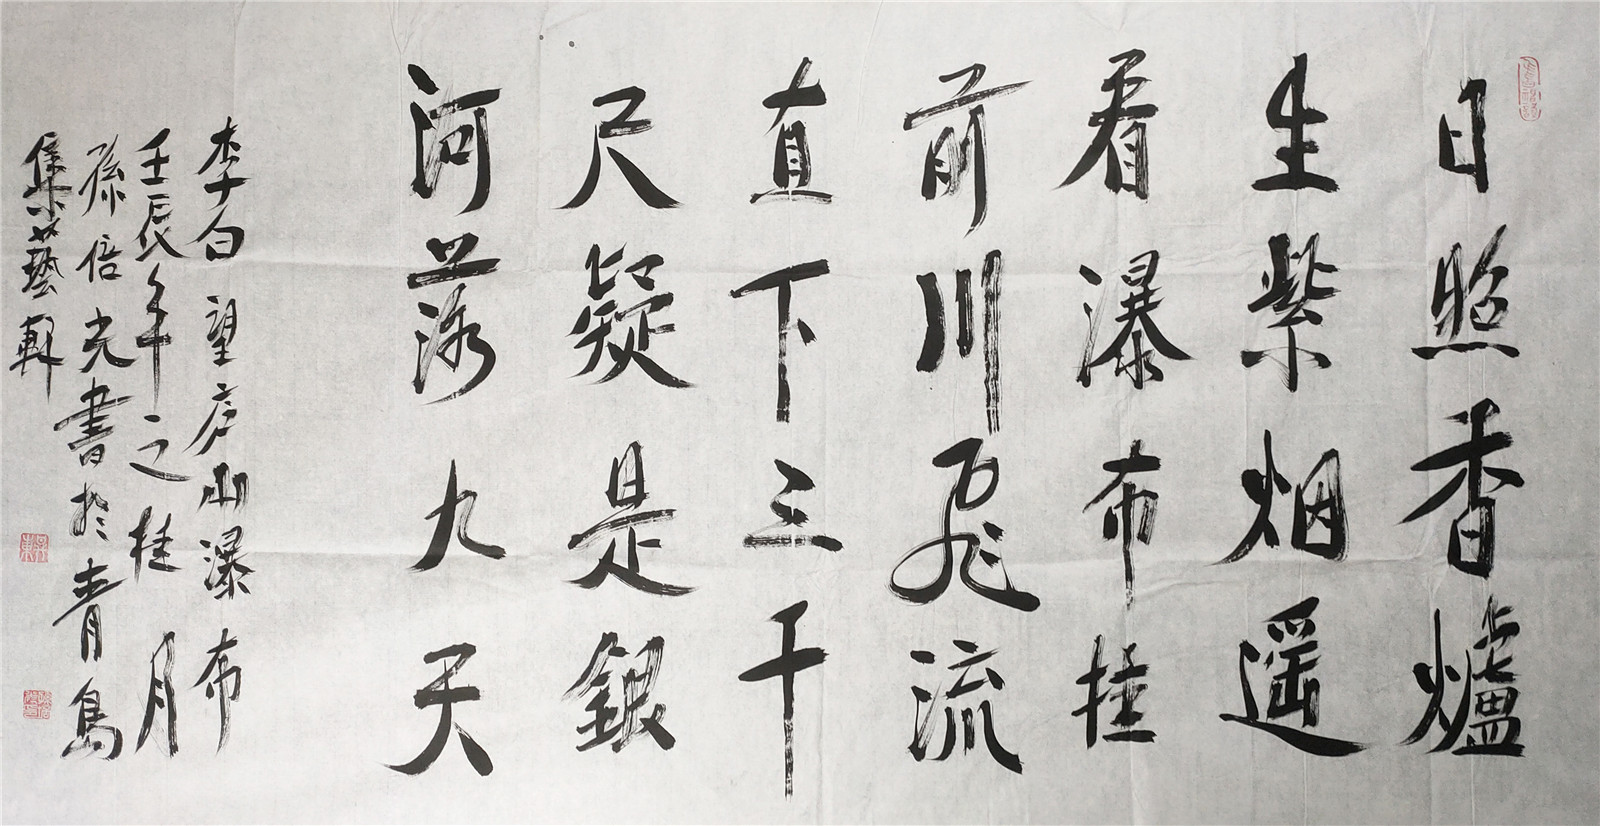 日照香爐
生紫烟遥
看瀑布挂
前川飛流
直下三千
尺疑是銀
河落九天
李白望庐山瀑布
壬辰年之桂月
孫倍光書於青島
集藝軒